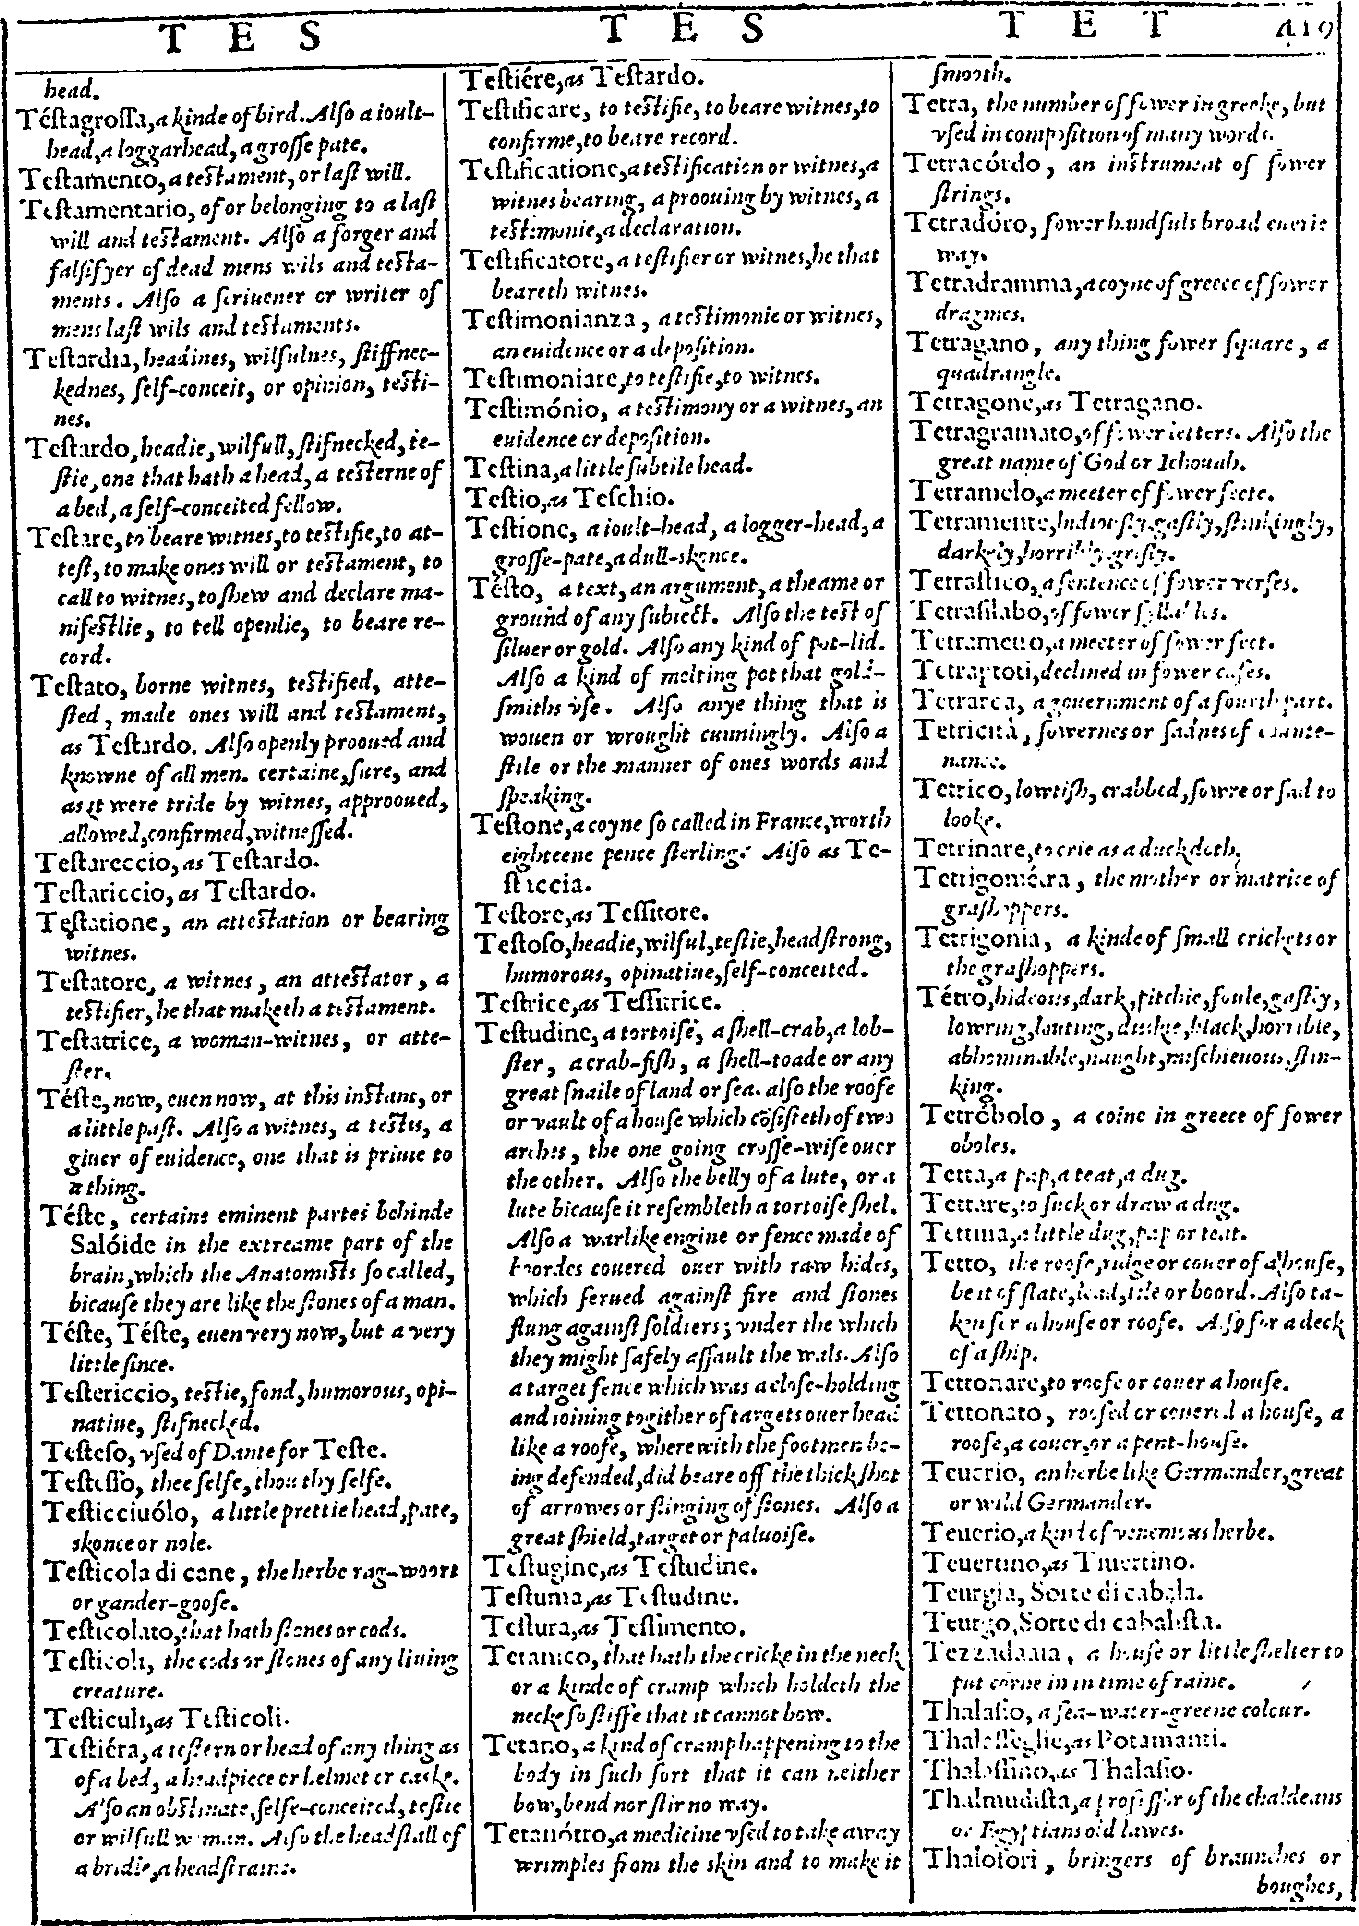 T E S
T E S
T E T 419
head.
Téstagrossa, a kinde of bird. Also a ioult-
head, a loggarhead, a grosse pate.
Testamento, a testament, or last will.
Testamentario, of or belonging to a last
will and testament. Also a forger and
falsifyer of dead mens wils and testa-
ments. Also a scriuener or writer of
mens last wils and testaments.
Testardia, headines, wilfulnes, stiffnec-
kednes, self-conceit, or opinion, testi-
nes.
Testardo, headie, wilfull, stifnecked, te-
stie, one that hath a head, a testerne of
a bed, a self-conceited fellow.
Testare, to beare witnes, to testifie, to at-
test, to make ones will or testament, to
call to witnes, to shew and declare ma-
nifestlie, to tell openlie, to beare re-
cord.
Testato, borne witnes, testified, atte-
sted, made ones will and testament,
as Testardo. Also openly prooued and
knowne of all men. certaine, sure, and
as it were tride by witnes, approoued,
allowed, confirmed, witnessed.
Testareccio, as Testardo.
Testariccio, as Testardo.
Testatione, an attestation or bearing
witnes.
Testatore, a witnes, an attestator, a
testifier, he that maketh a testament.
Testatrice, a woman-witnes, or atte-
ster.
Téste, now, euen now, at this instant, or
a little past. Also a witnes, a testis, a
giuer of euidence, one that is priuie to
a thing.
Téste, certaine eminent partes behinde
Salóide in the extreame part of the
brain, which the Anatomists so called,
bicause they are like the stones of a man.
Téste, Téste, euen very now, but a very
little since.
Testericcio, testie, fond, humorous, opi-
natiue, stifnecked.
Testeso, vsed of Dante for Teste.
Testesso, thee selfe, thou thy selfe.
Testicciuólo, a little prettie head, pate,
skonce or nole.
Testicola di cane, the herbe rag-woort
or gander-goose.
Testicolato, that hath stones or cods.
Testicoli, the cods or stones of any liuing
creature.
Testiculi, as Testicoli.
Testiéra, a testern or head of any thing as
of a bed, a headpiece or helmet or caske.
Also an obstinate, selfe-conceited, testie
or wilfull woman. Also the headstall of
a bridle, a headstraine.
Testiére, as Testardo.
Testificare, to testifie, to beare witnes, to
confirme, to beare record.
Testificatione, a testification or witnes, a
witnes bearing, a proouing by witnes, a
testimonie, a declaration.
Testificatore, a testifier or witnes, he that
beareth witnes.
Testimonianza, a testimonie or witnes,
an euidence or a deposition.
Testimoniare, to testifie, to witnes.
Testimónio, a testimony or a witnes, an
euidence or deposition.
Testina, a little subtile head.
Testio, as Teschio.
Testione, a ioult-head, a logger-head, a
grosse-pate, a dull-skonce.
Tésto, a text, an argument, a theame or
ground of any subiect. Also the test of
siluer or gold. Also any kind of pot-lid.
Also a kind of melting pot that gold-
smiths vse. Also anye thing that is
wouen or wrought cunningly. Also a
stile or the manner of ones words and
speaking.
Testone, a coyne so called in France, worth
eighteene pence sterling. Also as Te-
sticcia.
Testore, as Tessitore.
Testoso, headie, wilful, testie, headstrong,
humorous, opinatiue, self-conceited.
Testrice, as Tessitrice.
Testudine, a tortoise, a shell-crab, a lob-
ster, a crab-fish, a shell-toade or any
great snaile of land or sea. also the roofe
or vault of a house which cõsisteth of two
arches, the one going crosse-wise ouer
the other. Also the belly of a lute, or a
lute bicause it resembleth a tortoise shel.
Also a warlike engine or fence made of
boordes couered ouer with raw hides,
which serued against fire and stones
flung against soldiers; vnder the which
they might safely assault the wals. Also
a target fence which was a close-holding
and ioining togither of targets ouer head
like a roofe, where with the footmen be-
ing defended, did beare off the thick shot
of arrowes or slinging of stones. Also a
great shield, target or paluoise.
Testugine, as Testudine.
Testuma, as Testudine.
Testura, as Tessimento.
Tetanico, that hath the cricke in the neck
or a kinde of cramp which holdeth the
necke so stiffe that it cannot bow.
Tetano, a kind of cramp happening to the
body in such sort that it can neither
bow, bend nor stir no way.
Tetanótro, a medicine vsed to take away
wrimples from the skin and to make it
smooth.
Tetra, the number of fower in greeke, but
vsed in composition of many words.
Tetracórdo, an instrument of fower
strings.
Tetradóro, fower handfuls broad euerie
way.
Tetradramma, a coyne of greece of fower
dragmes.
Tetragano, any thing fower square, a
quadrangle.
Tetragone, as Tetragano.
Tetragramato, of fower letters. Also the
great name of God or Iehouah.
Tetramelo, a meeter of fower feete.
Tetramente, hideously, gastly, stinkingly,
darkely, horribly, grisly.
Tetrastico, a sentence of fower verses.
Tetrasilabo, of fower sillables.
Tetrametro, a meeter of fower feet.
Tetraptoti, declined in fower cases.
Tetrarca, a gouernment of a fourth part.
Tetricità, sowernes or sadnes of counte-
nance.
Tetrico, lowrish, crabbed, sowre or sad to
looke.
Tetrinare, to crie as a duck doth.
Tetrigométra, the mother or matrice of
grashoppers.
Tetrigonia, a kinde of small crickets or
the grashoppers.
Tétro, hideous, dark, pitchie, foule, gastly,
lowring, louting, duskie, black, horrible,
abhominable, naught, mischieuous, stin-
king.
Tetróbolo, a coine in greece of fower
oboles.
Tetta, a pap, a teat, a dug.
Tettare, to suck or draw a dug.
Tettina, a little dug, pap or teat.
Tetto, the roofe, ridge or couer of a house,
be it of slate, lead, tile or boord. Also ta-
ken for a house or roofe. Also for a deck
of a ship.
Tettonare, to roofe or couer a house.
Tettonato, roofed or couered a house, a
roofe, a couer, or a pent-house.
Teucrio, an herbe like Germander, great
or wild Germander.
Teuerio, a kind of venemous herbe.
Teuertino, as Tiuertino.
Teurgia, Sorte di cabala.
Teurgo, Sorte di cabalista.
Tezzadama, a house or little shelter to
put corne in in time of raine.
Thalasio, a sea-water-greene colour.
Thalasseglie, as Potamanti.
Thalassino, as Thalasio.
Thalmudista, a professor of the chaldeans
or Egyptians old lawes.
Thalofori, bringers of braunches or
boughes,